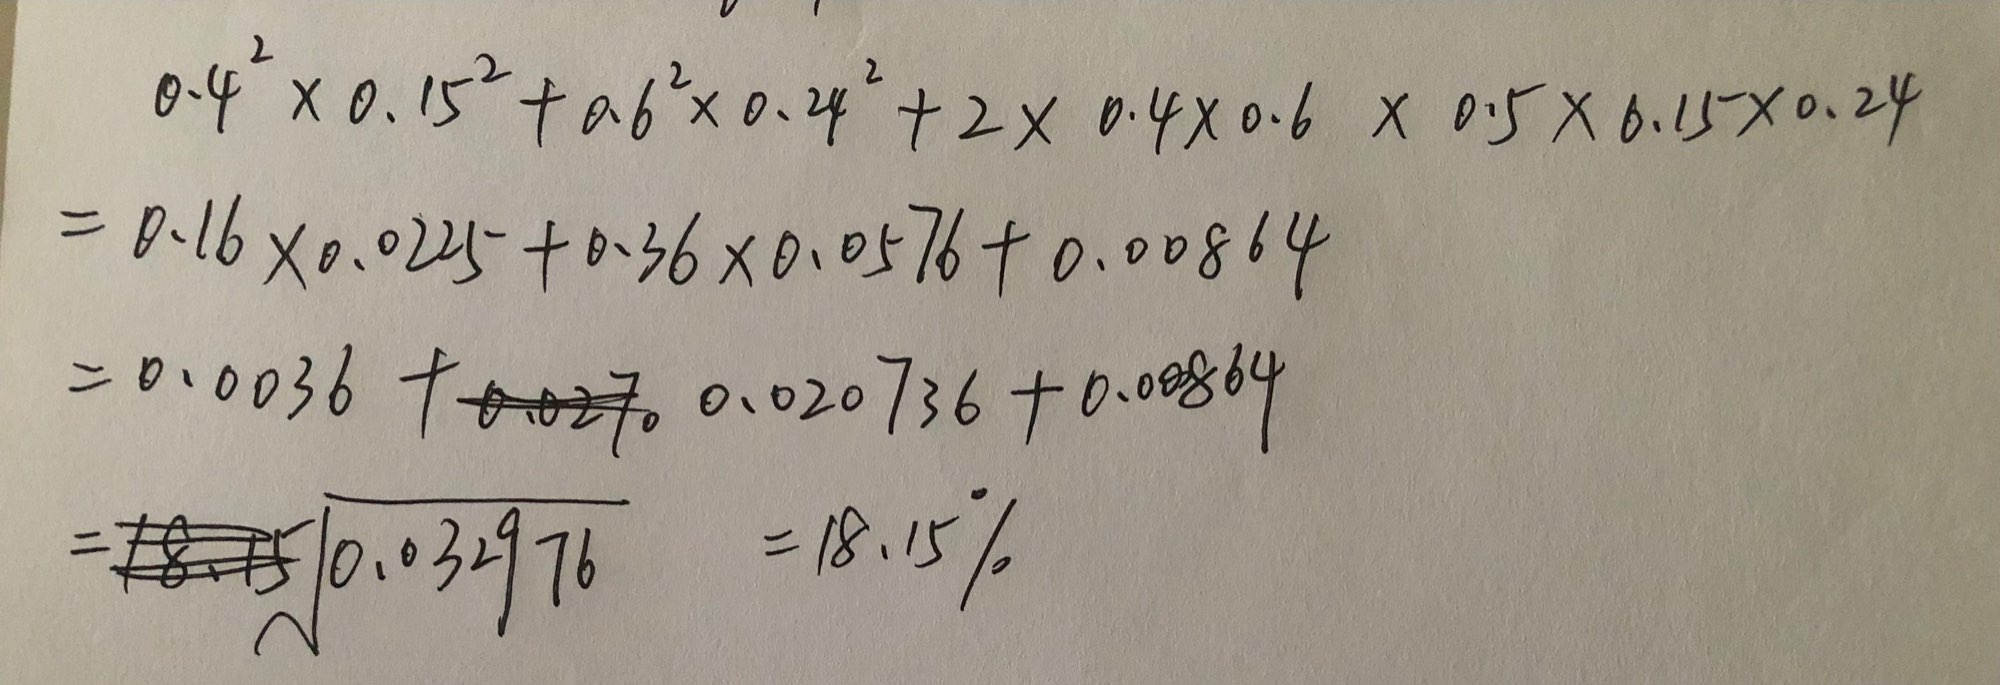 0.4² × 0.15² + 0.6² × 0.24² + 2 × 0.4 × 0.6 × 0.5 × 0.15 × 0.24
= 0.16 × 0.0225 + 0.36 × 0.0576 + 0.00864
= 0.0036 + 0.020736 + 0.00864
= √0.032976 = 18.15%